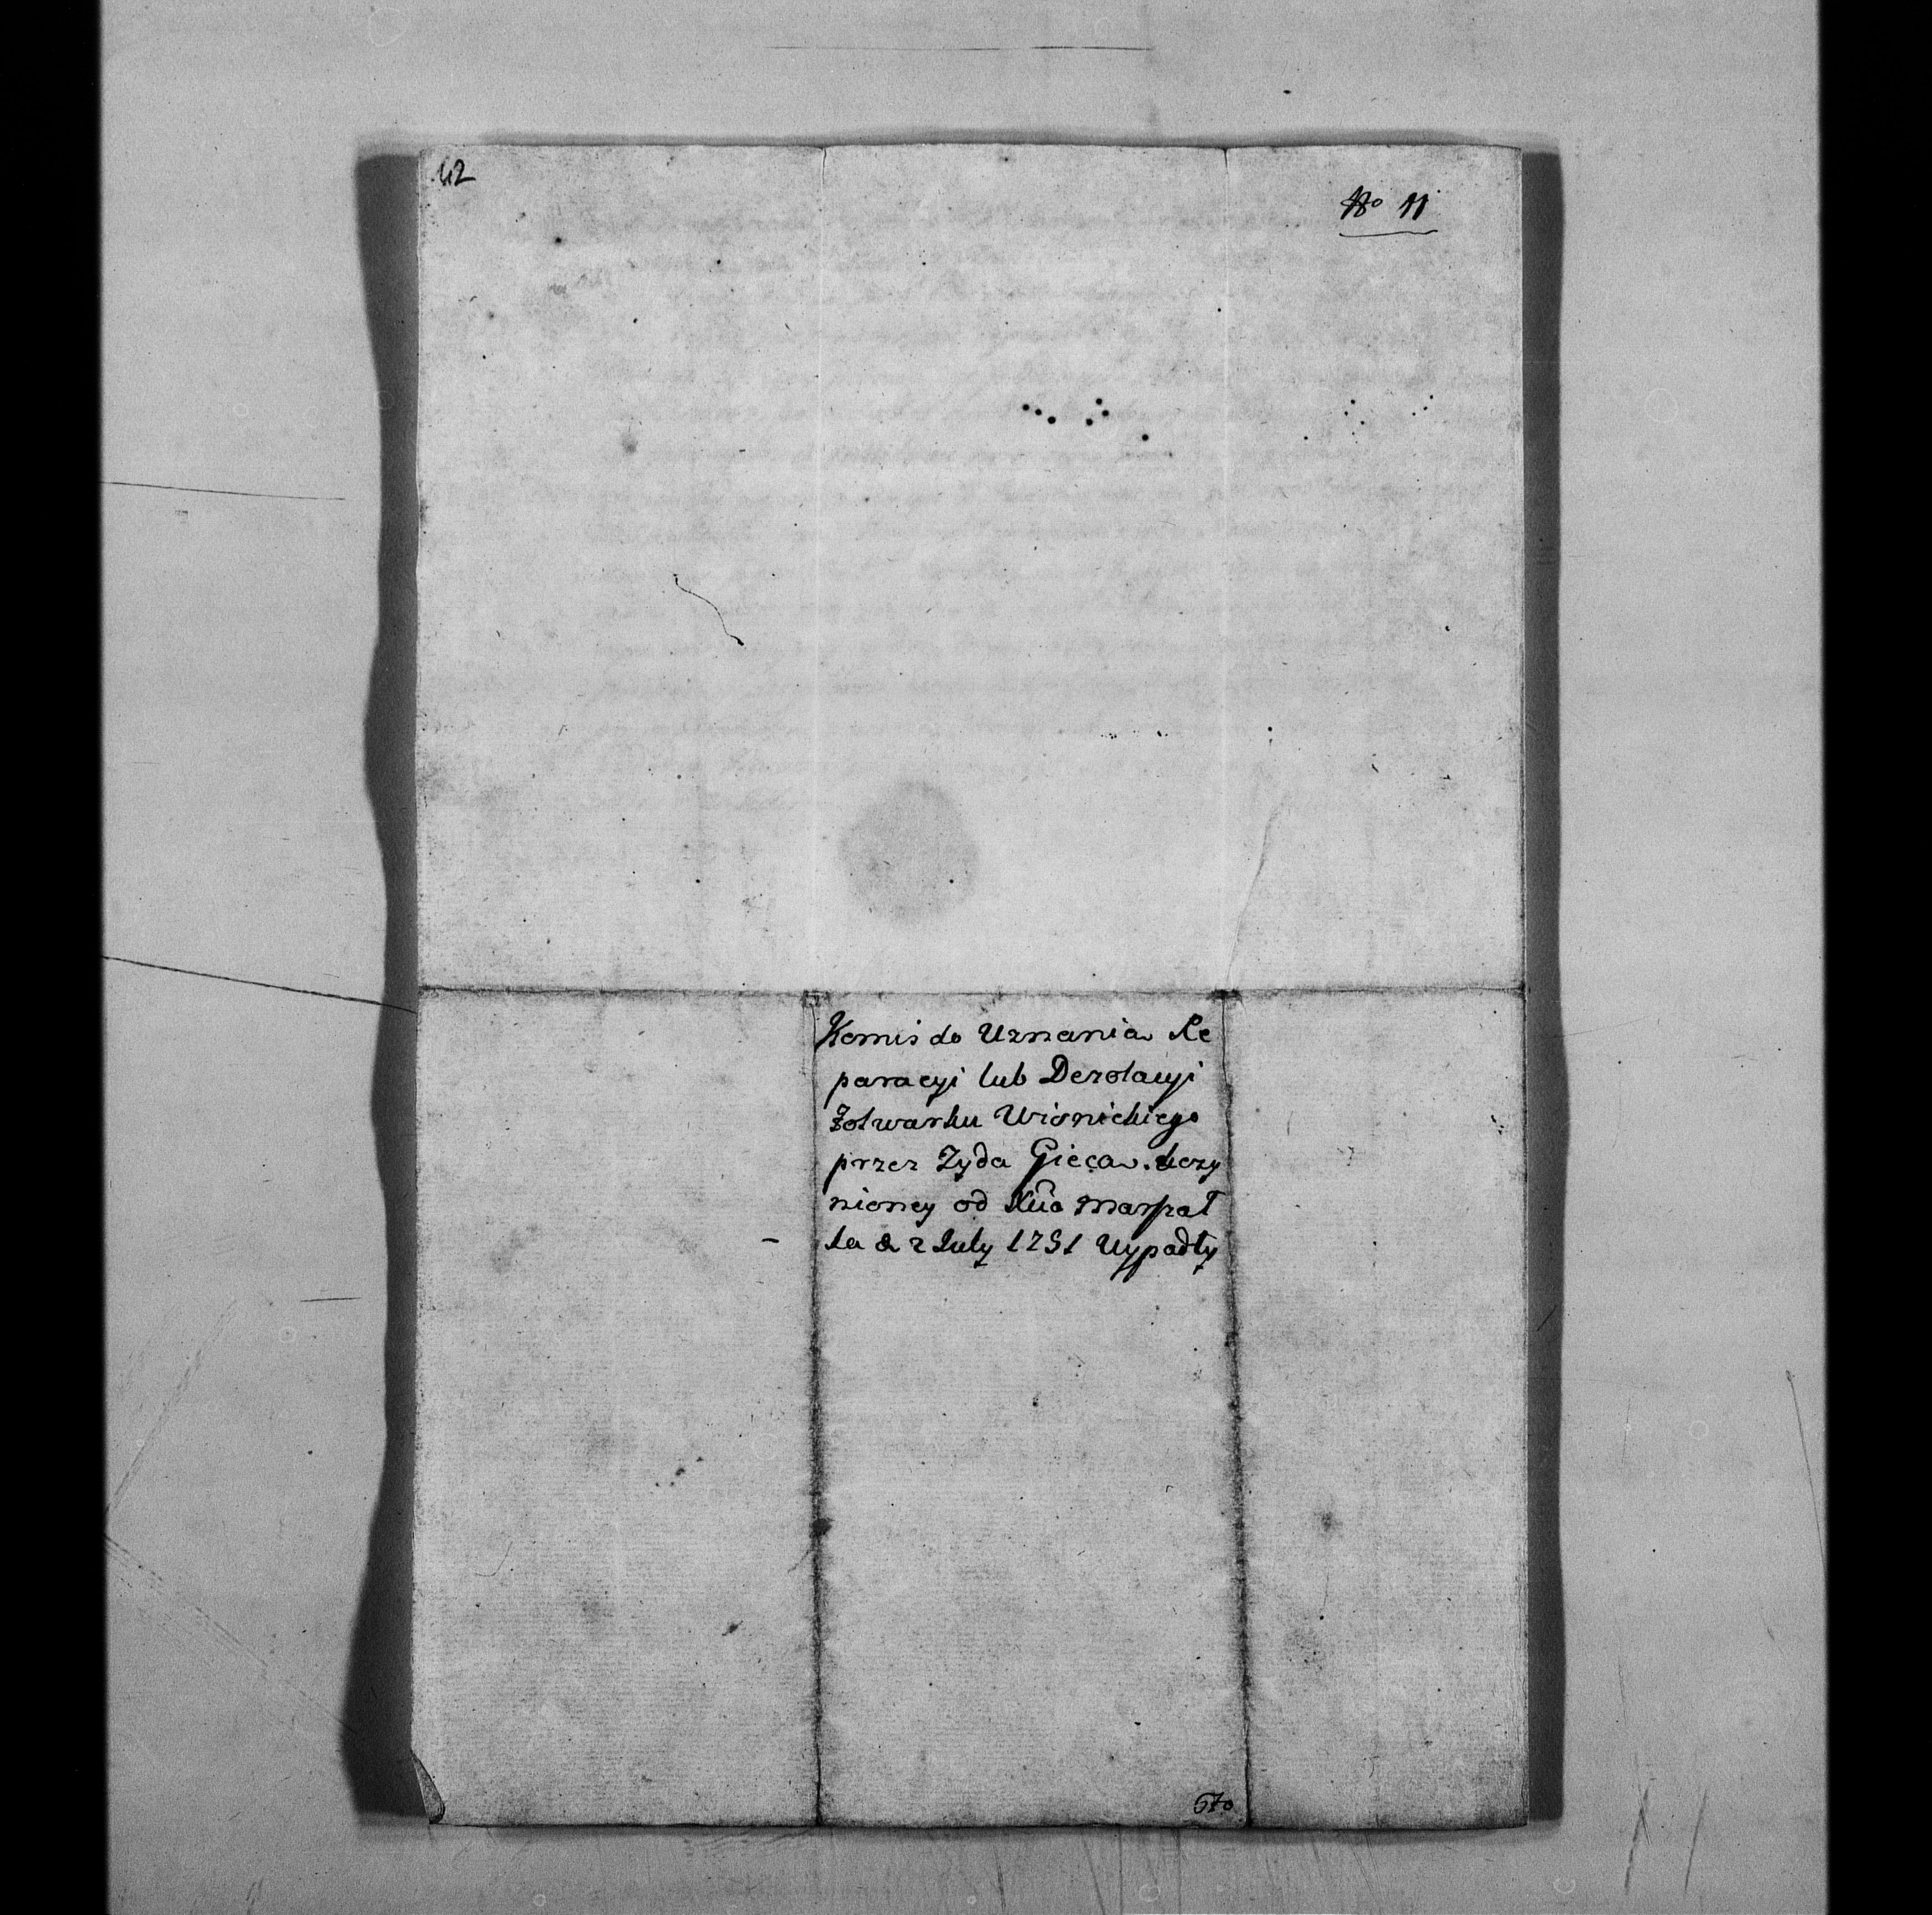 42
No 11
Komis do Uznania Re
paracyi lub Dezolacyi
Folwarku Wisnickiego
przez Zyda Gieca Uczy
nioney od Xcia Marszał
ka d 2 July 1751 Wypadły
670